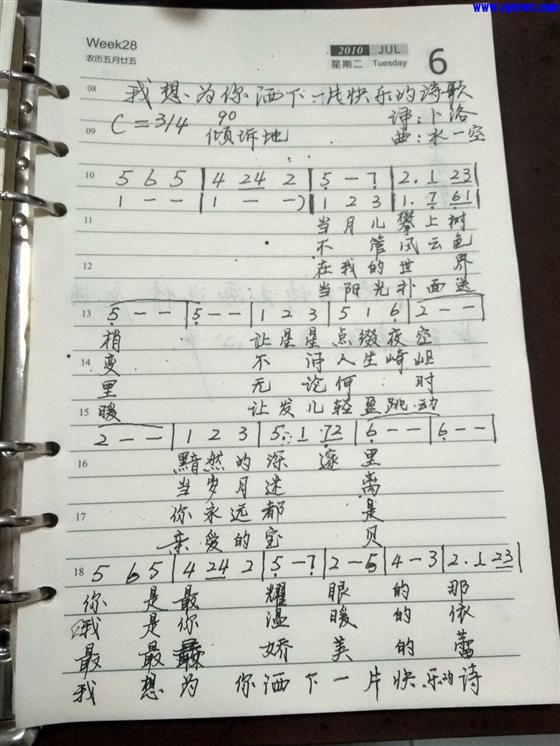 www.zgycsc.com
Week28
农历五月廿五
2010 JUL
星期二 Tuesday
6
08 我想为你洒下一片快乐的诗歌
C=3/4 90 词:卜洛
09 倾诉地 曲:水一空
10 5 6 5 | 4 24 2 | 5 - 7 | 2. 1 23 |
1 - - | 1 - - ) | 1 2 3 | 1. 7 61 |
11 当月儿攀上树
不管风云色
12 在我的世界
当阳光扑面送
13 5 - - | 5 - - | 1 2 3 | 5 1 6 | 2 - - |
梢 让星星点缀夜空
14 变 不讨人生崎岖
里 无论何时
15 暖 让发儿轻盈跳动
2 - - | 1 2 3 | 5. 1 72 | 6 - - | 6 - - |
16 黯然的深邃里
当岁月迷离
17 你永远都是
亲爱的宝贝
18 5 6 5 | 4 24 2 | 5 - 7 | 2 - 5 | 4 - 3 | 2. 1 23 |
你是最耀眼的那
我是你温暖的依
最最最娇美的蕾
我想为你洒下一片快乐的诗